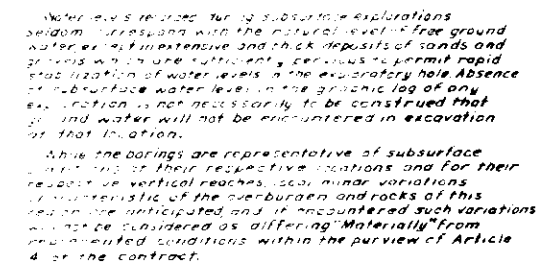 Water levels recorded during subsurface explorations
seldom correspond with the natural level of free ground
water, except in extensive and thick deposits of sands and
gravels which are sufficiently pervious to permit rapid
stabilization of water levels in the exploratory hole. Absence
of subsurface water levels in the graphic log of any
exploration is not necessarily to be construed that
ground water will not be encountered in excavation
at that location.
While the borings are representative of subsurface
conditions at their respective locations and for their
respective vertical reaches, local minar variations
characteristic of the overburden and rocks of this
region are anticipated and if encountered such variations
will not be considered as differing "Materially" from
represented conditions within the purview of Article
4 of the contract.